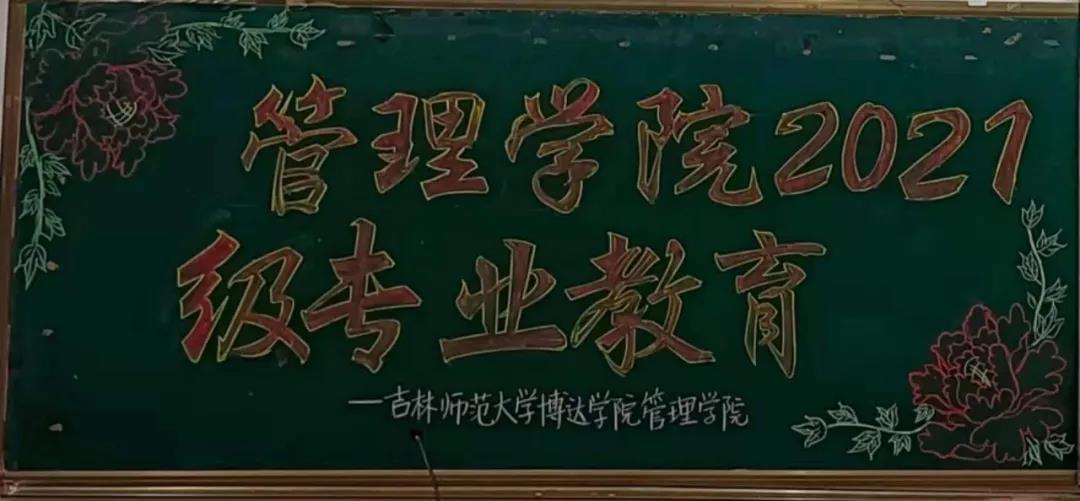 管理学院2021
级专业教育
—吉林师范大学博达学院管理学院